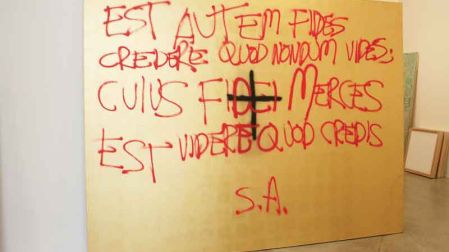 EST AUTEM FIDES
CREDERE QUOD NONDUM VIDES;
CUIUS FIDEI MERCES
EST VIDERE QUOD CREDIS
S.A.